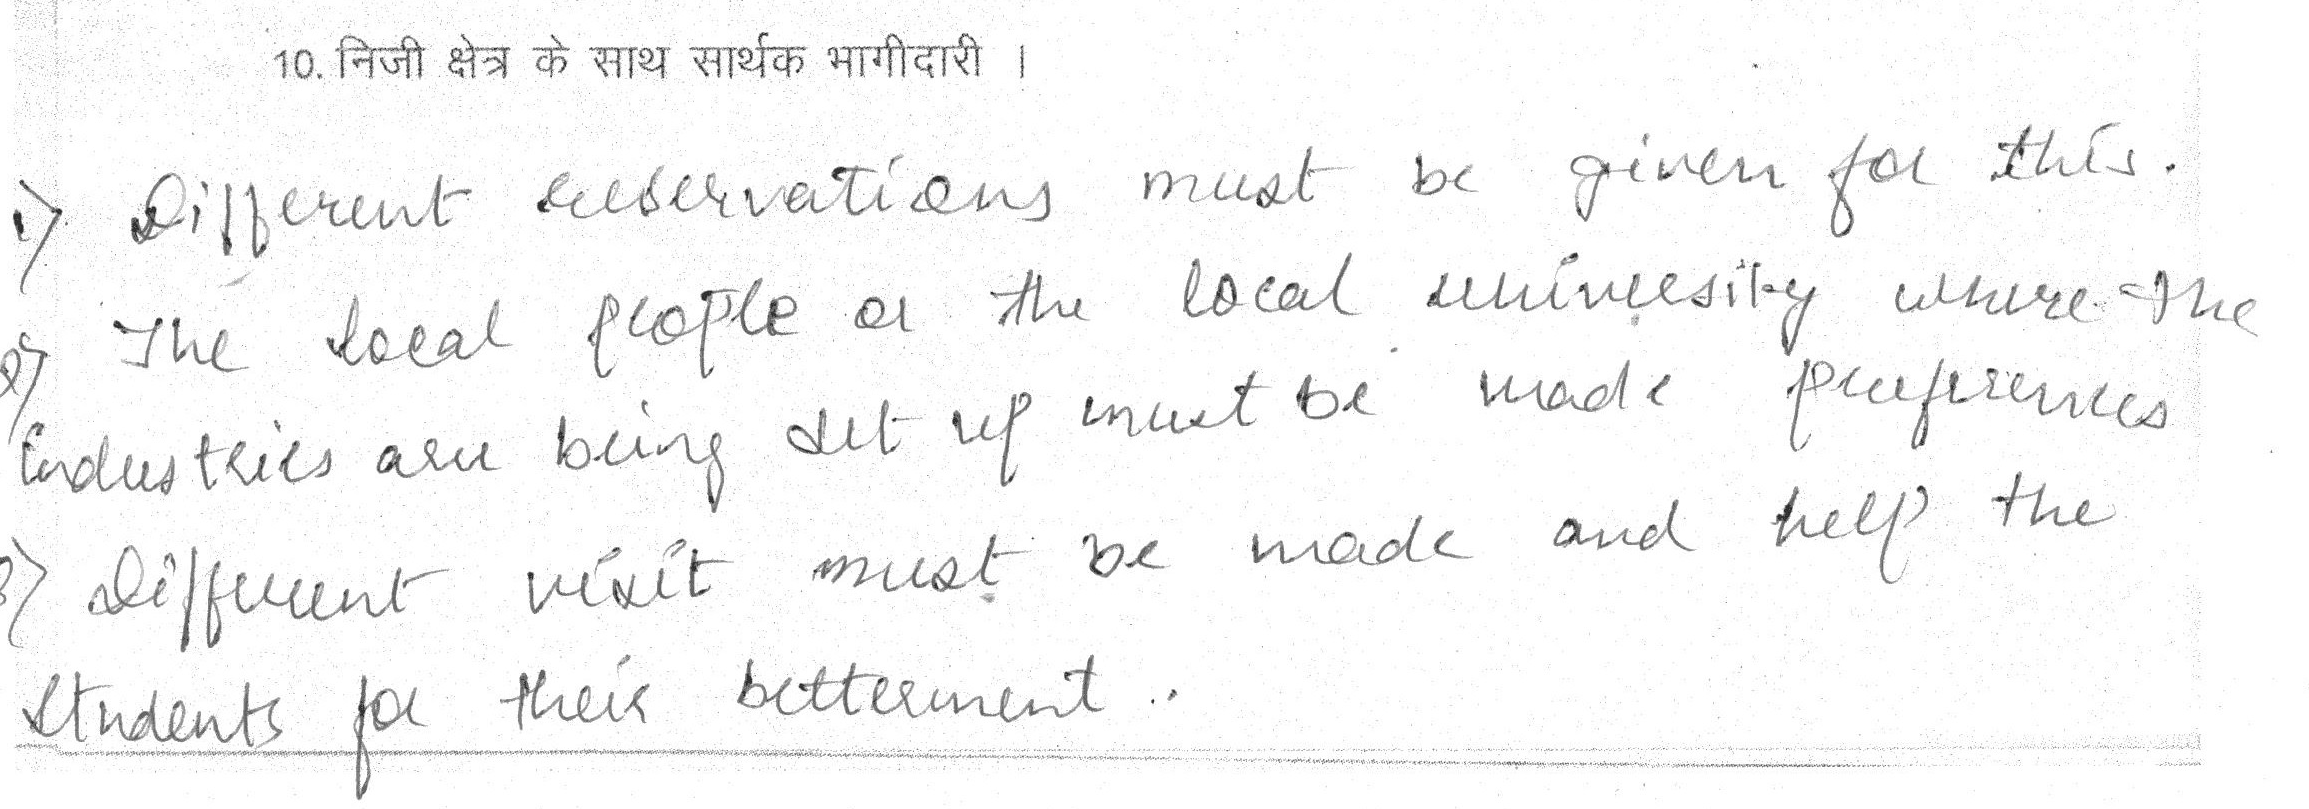 10. निजी क्षेत्र के साथ सार्थक भागीदारी ।
1) Different reservations must be given for this.
2) The local people or the local university where the
industries are being set up must be made preferences
3) Different visit must be made and help the
students for their betterment ..